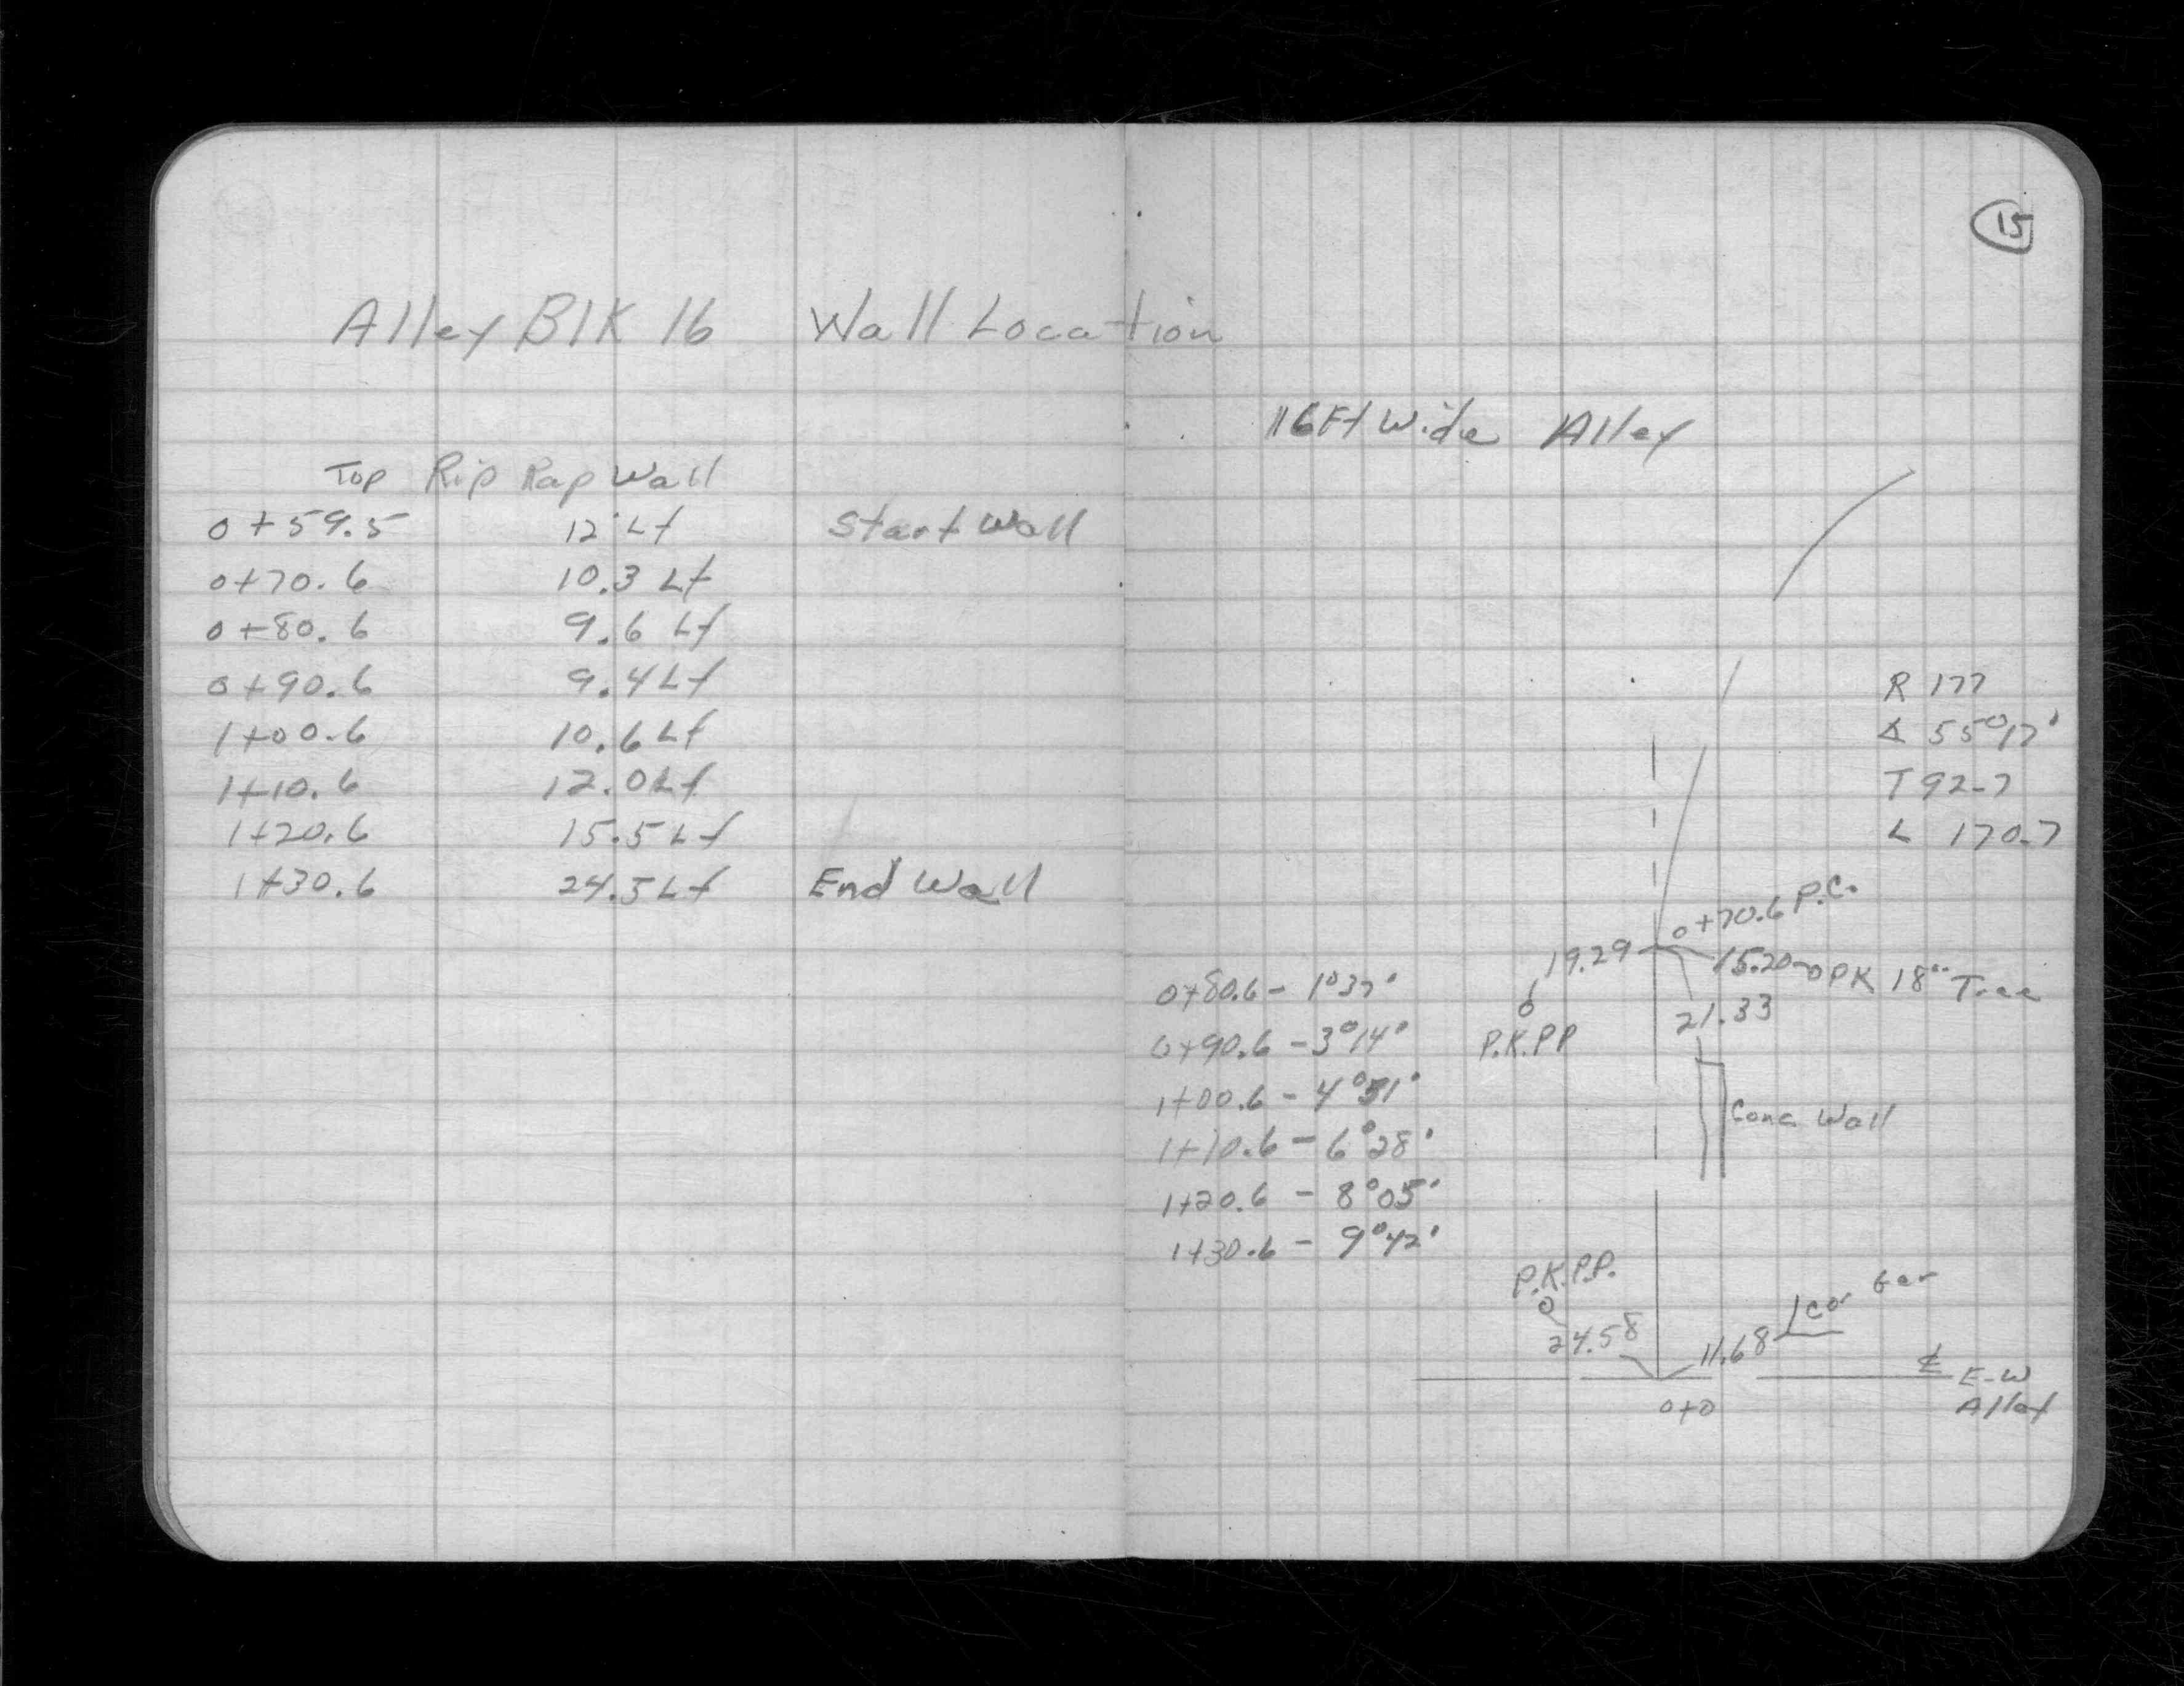 15
Alley Blk 16 Wall Location
16 Ft Wide Alley
Top Rip Rap Wall
0+59.5 12' Lt Start Wall
0+70.6 10.3 Lt
0+80.6 9.6 Lt
0+90.6 9.4 Lt
1+00.6 10.6 Lt
1+10.6 12.0 Lt
1+20.6 15.5 Lt
1+30.6 24.5 Lt End Wall
R 177
∡ 55°17'
T 92.7
L 170.7
0+70.6 P.C.
19.29
15.20 PK 18" Tree
21.33
P.K.PP
Conc Wall
0+80.6 - 1°37'
0+90.6 - 3°14'
1+00.6 - 4°51'
1+10.6 - 6°28'
1+20.6 - 8°05'
1+30.6 - 9°42'
P.K.P.P.
24.58
11.68
Cor Gar
℄ E-W
Alley
0+0